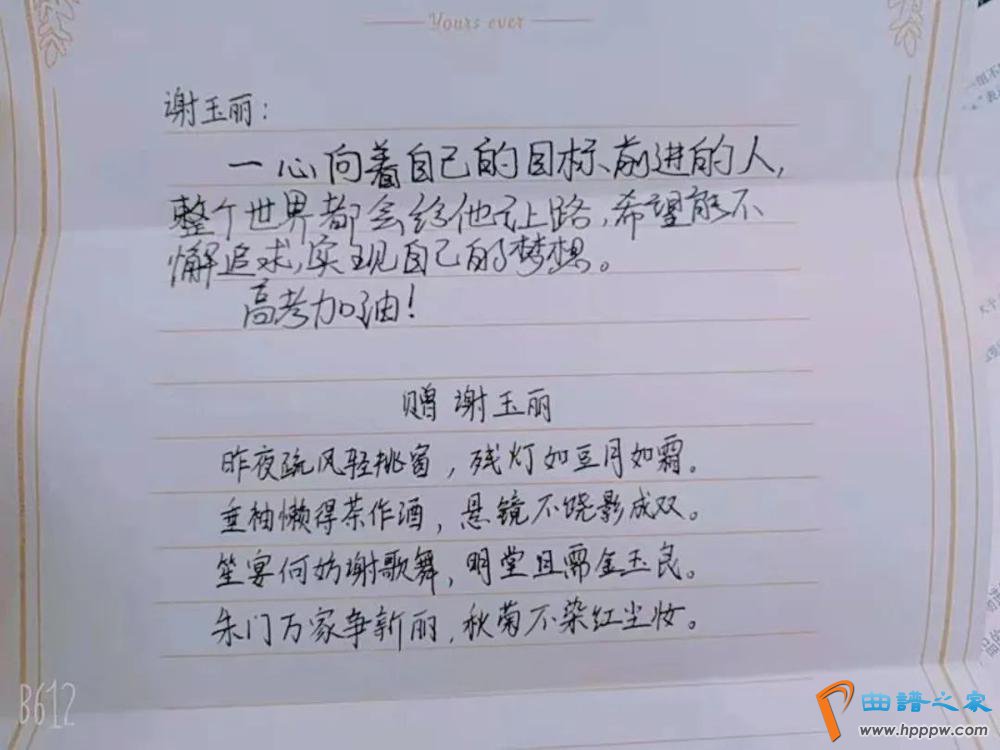 Yours ever
谢玉丽：
一心向着自己的目标、前进的人，
整个世界都会给他让路，希望能不
懈追求，实现自己的梦想。
高考加油！
赠谢玉丽
昨夜疏风轻挑窗，残灯如豆月如霜。
垂袖懒得茶作酒，悬镜不晓影成双。
笙宴何妨谢歌舞，明堂且需金玉良。
朱门万家争新丽，秋菊不染红尘妆。
B612
曲谱之家
www.hpppw.com